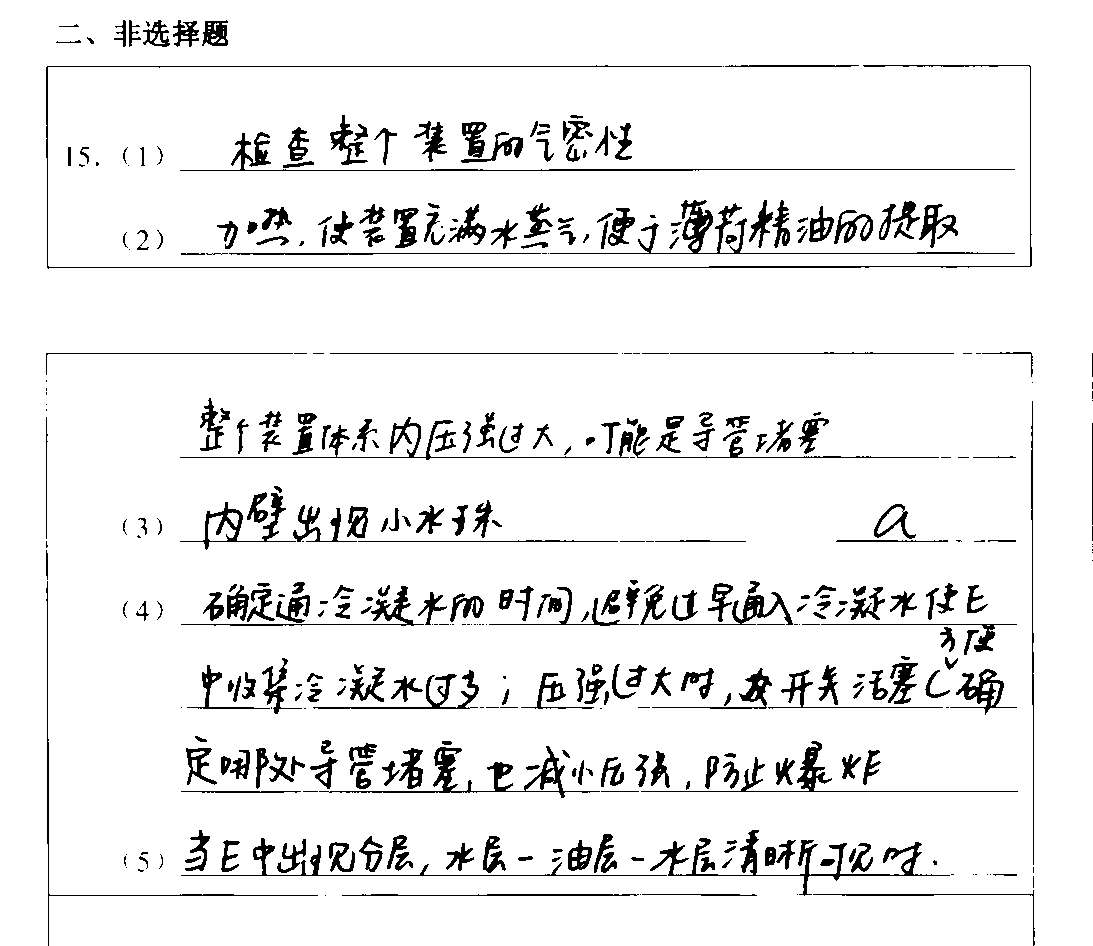 二、非选择题
15.（1） 检查整个装置的气密性
（2） 加热,使装置充满水蒸气,便于薄荷精油的提取
整个装置体系内压强过大,可能是导管堵塞
（3） 内壁出现小水珠 a
（4） 确定通冷凝水的时间,避免过早通入冷凝水使E
方便
中收集冷凝水过多；压强过大时,支开关活塞C确
定哪处导管堵塞,也减小压强,防止爆炸
（5） 当E中出现分层,水层-油层-水层清晰可见时.